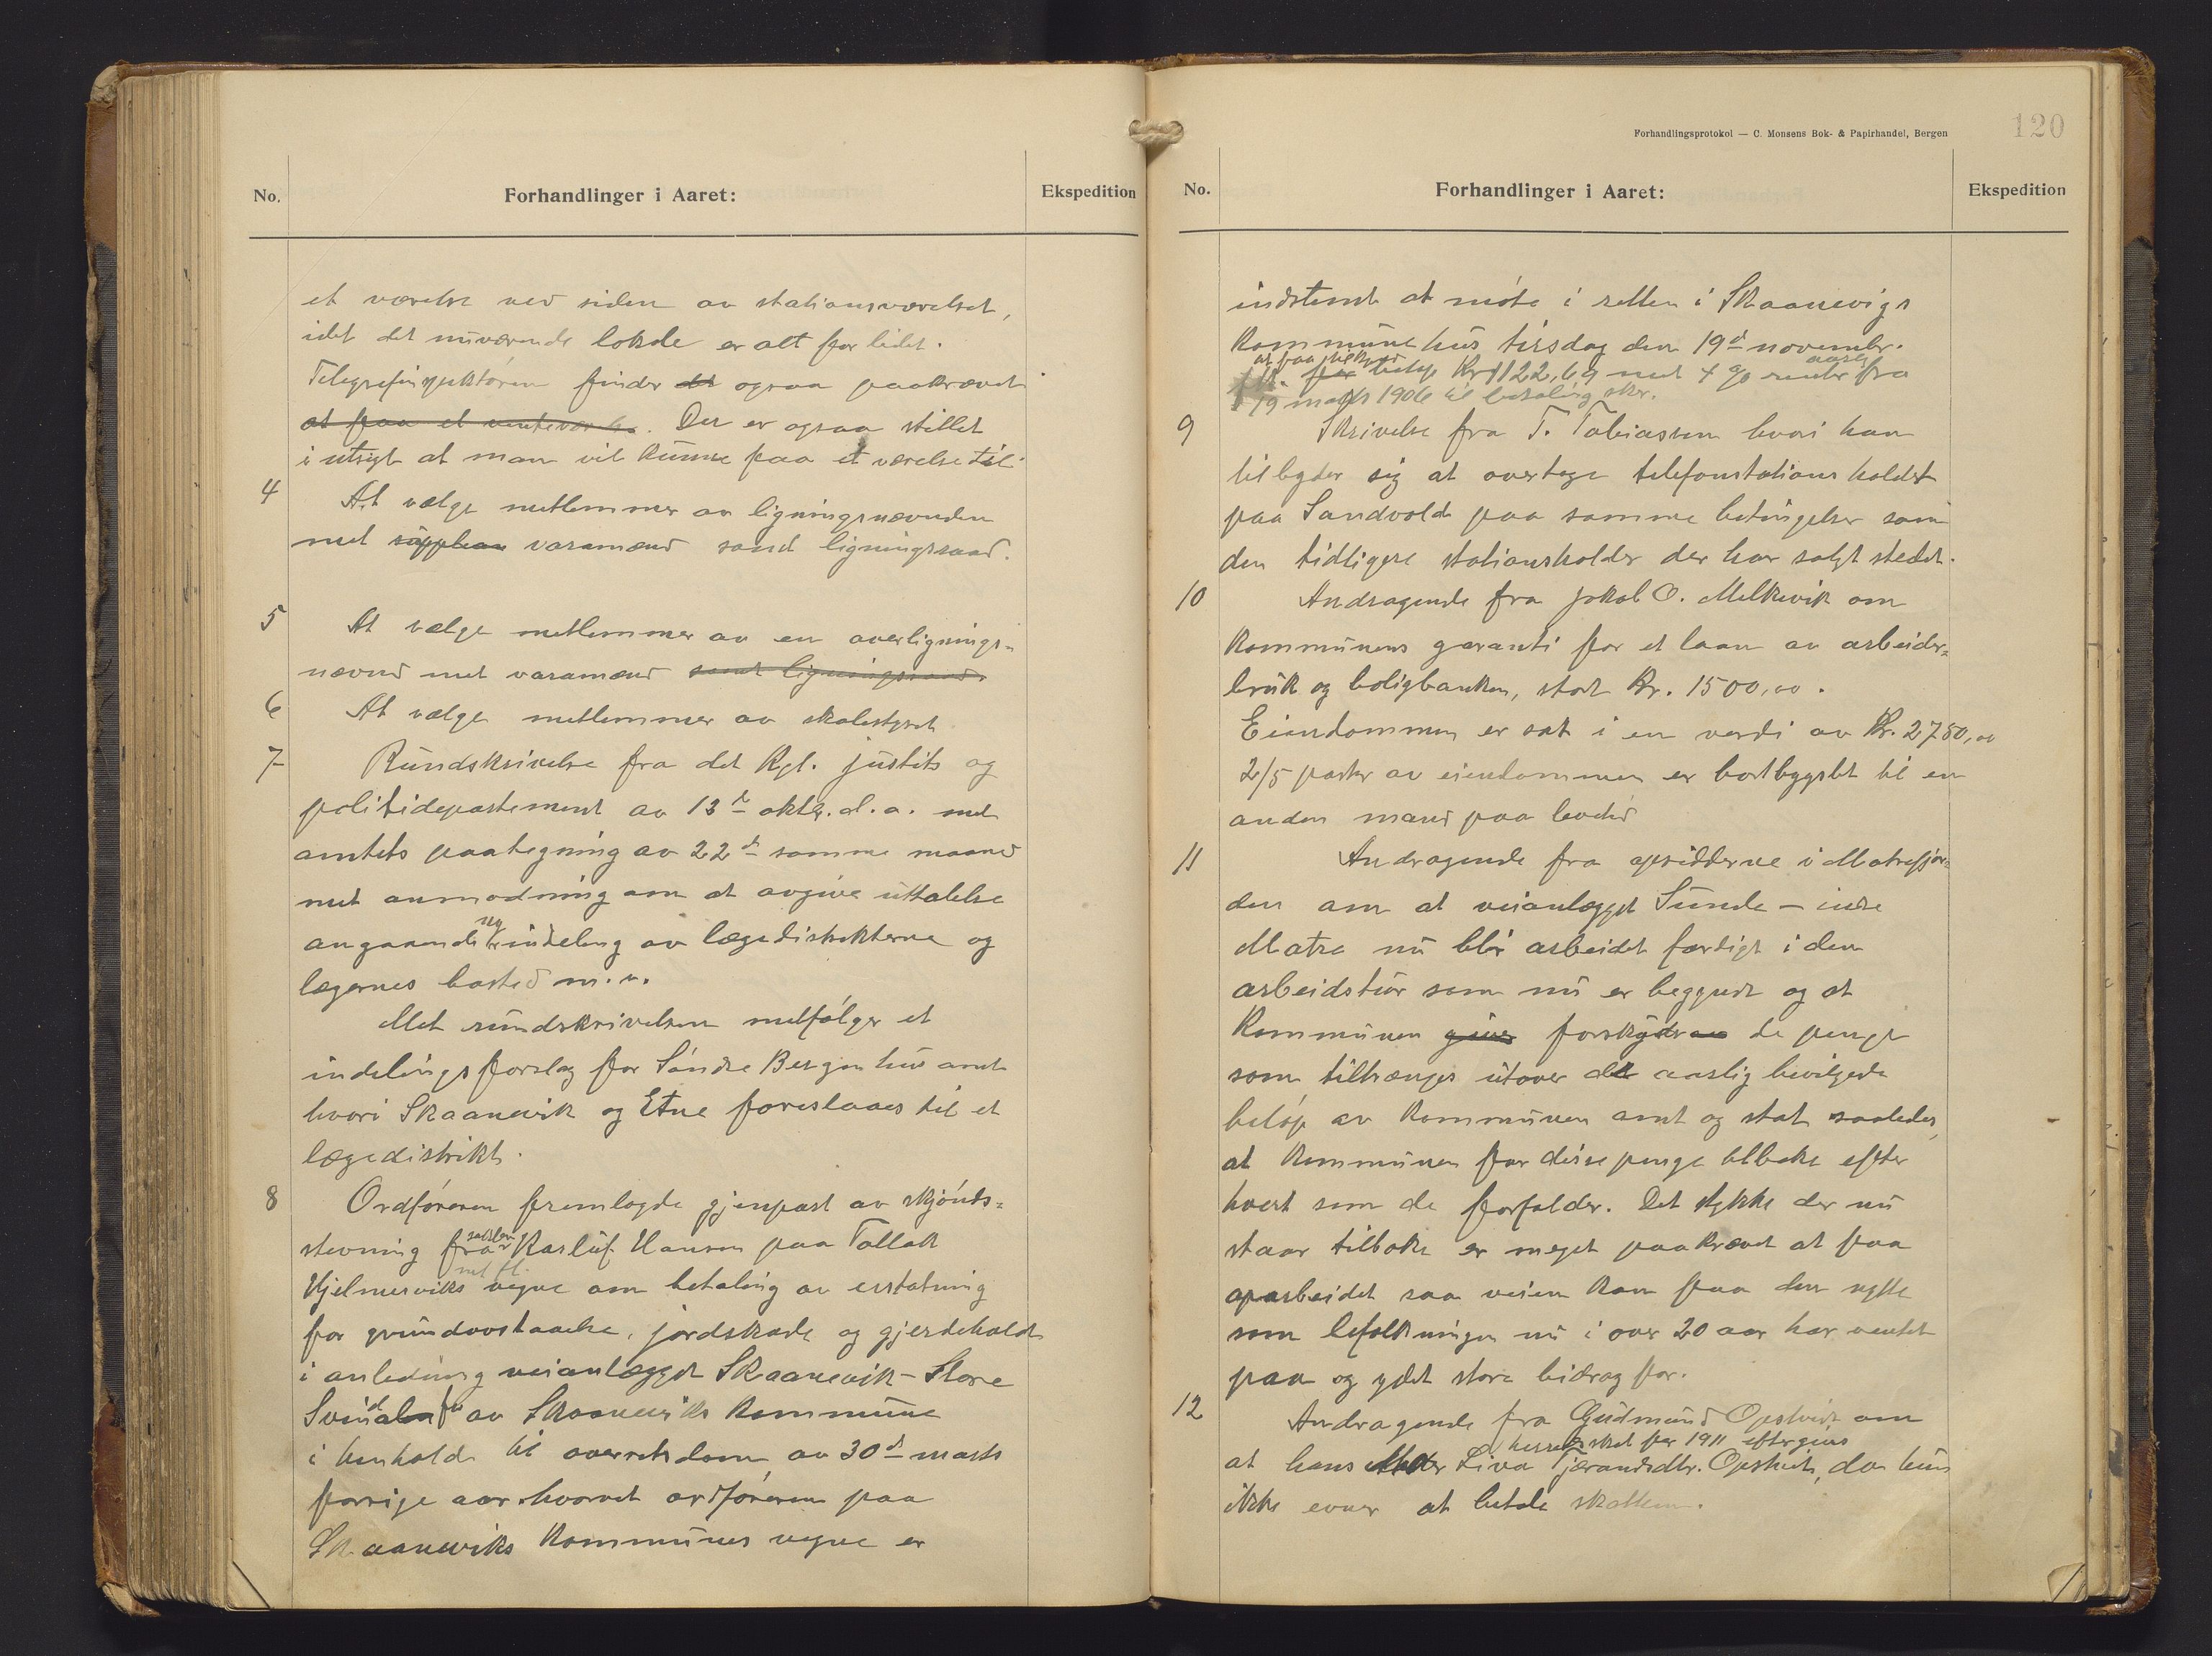 No.
Forhandlinger i Aaret:
Ekspedition
et værelse ved siden av stationsværelset,
idet det nuværende lokale er alt for lidet.
Telegrafinspektøren finder det ogsaa paakrævet
at faa et venteværelse. Der er ogsaa stillet
i utsigt at man vil kunne faa et værelse til.
4 At vælge medlemmer av ligningsnævnden
med supplean varamænd samt ligningsraad.
5 At vælge medlemmer av en overlignings-
nævnd med varamænd samt ligningsraad.
6 At vælge medlemmer av skolestyret
7 Rundskrivelse fra det Kgl. justits og
politidepartement av 13de oktbr. d.a. med
amtets paategning av 22de samme maaned
med anmodning om at avgive uttalelse
angaaende ny inddeling av lægedistrikterne og
lægernes bosted m.v.
Med rundskrivelsen medfølger et
indelingsforslag for Søndre Bergenhus amt
hvori Skaanevik og Etne foreslaaes til et
lægedistrikt.
8 Ordføreren fremlagde gjenpart av skjønds-
stevning fra sakfører Karluf Hansen paa Tollak
Hjelmerviks med fl. vegne om betaling av erstatning
for grundavstaaelse, jordskade og gjerdehold
i anledning veianlægget Skaanevik - Store
Svindal av Skaaneviks kommune
i henhold til overretsdom av 30d marts
forrige aar hvorved ordføreren paa
Skaaneviks kommunes vegne er
Forhandlingsprotokol — C. Monsens Bok- & Papirhandel, Bergen
120
No.
Forhandlinger i Aaret:
Ekspedition
indstevnt at møte i retten i Skaanevigs
kommunehus tirsdag den 19d novembr.
beløp Kr 1122,69 med 4 % aarlig renter fra
19 marts 1906 til betaling sker.
9 Skrivelse fra T. Tobiassen hvori han
tilbyder sig at overtage telefonstationsholdet
paa Sandvold paa samme betingelser som
den tidligere stationsholder der har solgt stedet.
10 Andragende fra Jakob O. Melkevik om
kommunens garanti for et laan av arbeider-
bruk og boligbanken, stort Kr. 1500,00.
Eiendommen er sat i en verdi av Kr. 2750,00
2/5 parter av eiendommen er bortbygslet til en
anden mand paa levetid
11 Andragende fra opsidderne i Matrefjor-
den om at veianlægget Sunde - indre
Matre nu blir arbeidet færdigt i den
arbeidstur som nu er begyndt og at
kommunen forskyder de penge
som tiltrænges utover det aarlig bevilgede
beløp av kommunen amt og stat saaledes
at kommunen faar disse penge tilbake efter
hvert som de forfalder. Det stykke der nu
staar tilbake er meget paakrævet at faa
oparbeidet saa veien kan faa den nytte
som befolkningen nu i over 20 aar har ventet
paa og ydet store bidrag for.
12 Andragende fra Gudmund Opstveit om
at hans Moder Liva Tjærandsdtr. Opstveit herredsskat for 1911 eftergives, da hun
ikke evner at betale skatten.